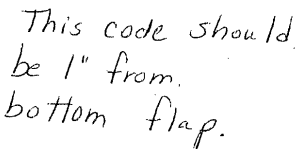 This code should
be 1" from.
bottom flap.